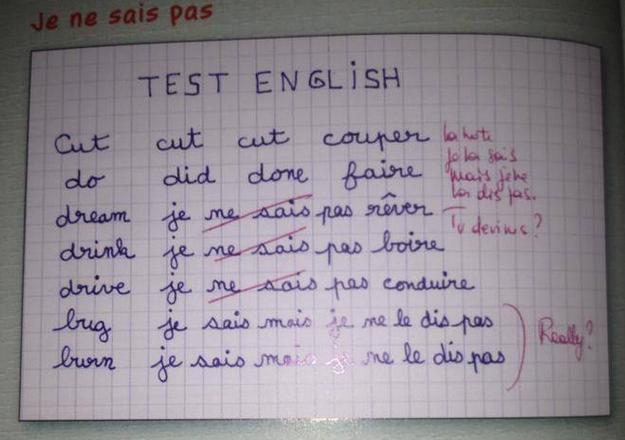 Je ne sais pas
TEST ENGLISH
Cut cut cut couper
do did done faire
dream je ne sais pas rêver
drink je ne sais pas boire
drive je ne sais pas conduire
bug je sais mais je ne le dis pas
burn je sais mais je ne le dis pas
la note
je la sais
mais je ne
la dis pas.
Tu devines?
Really?